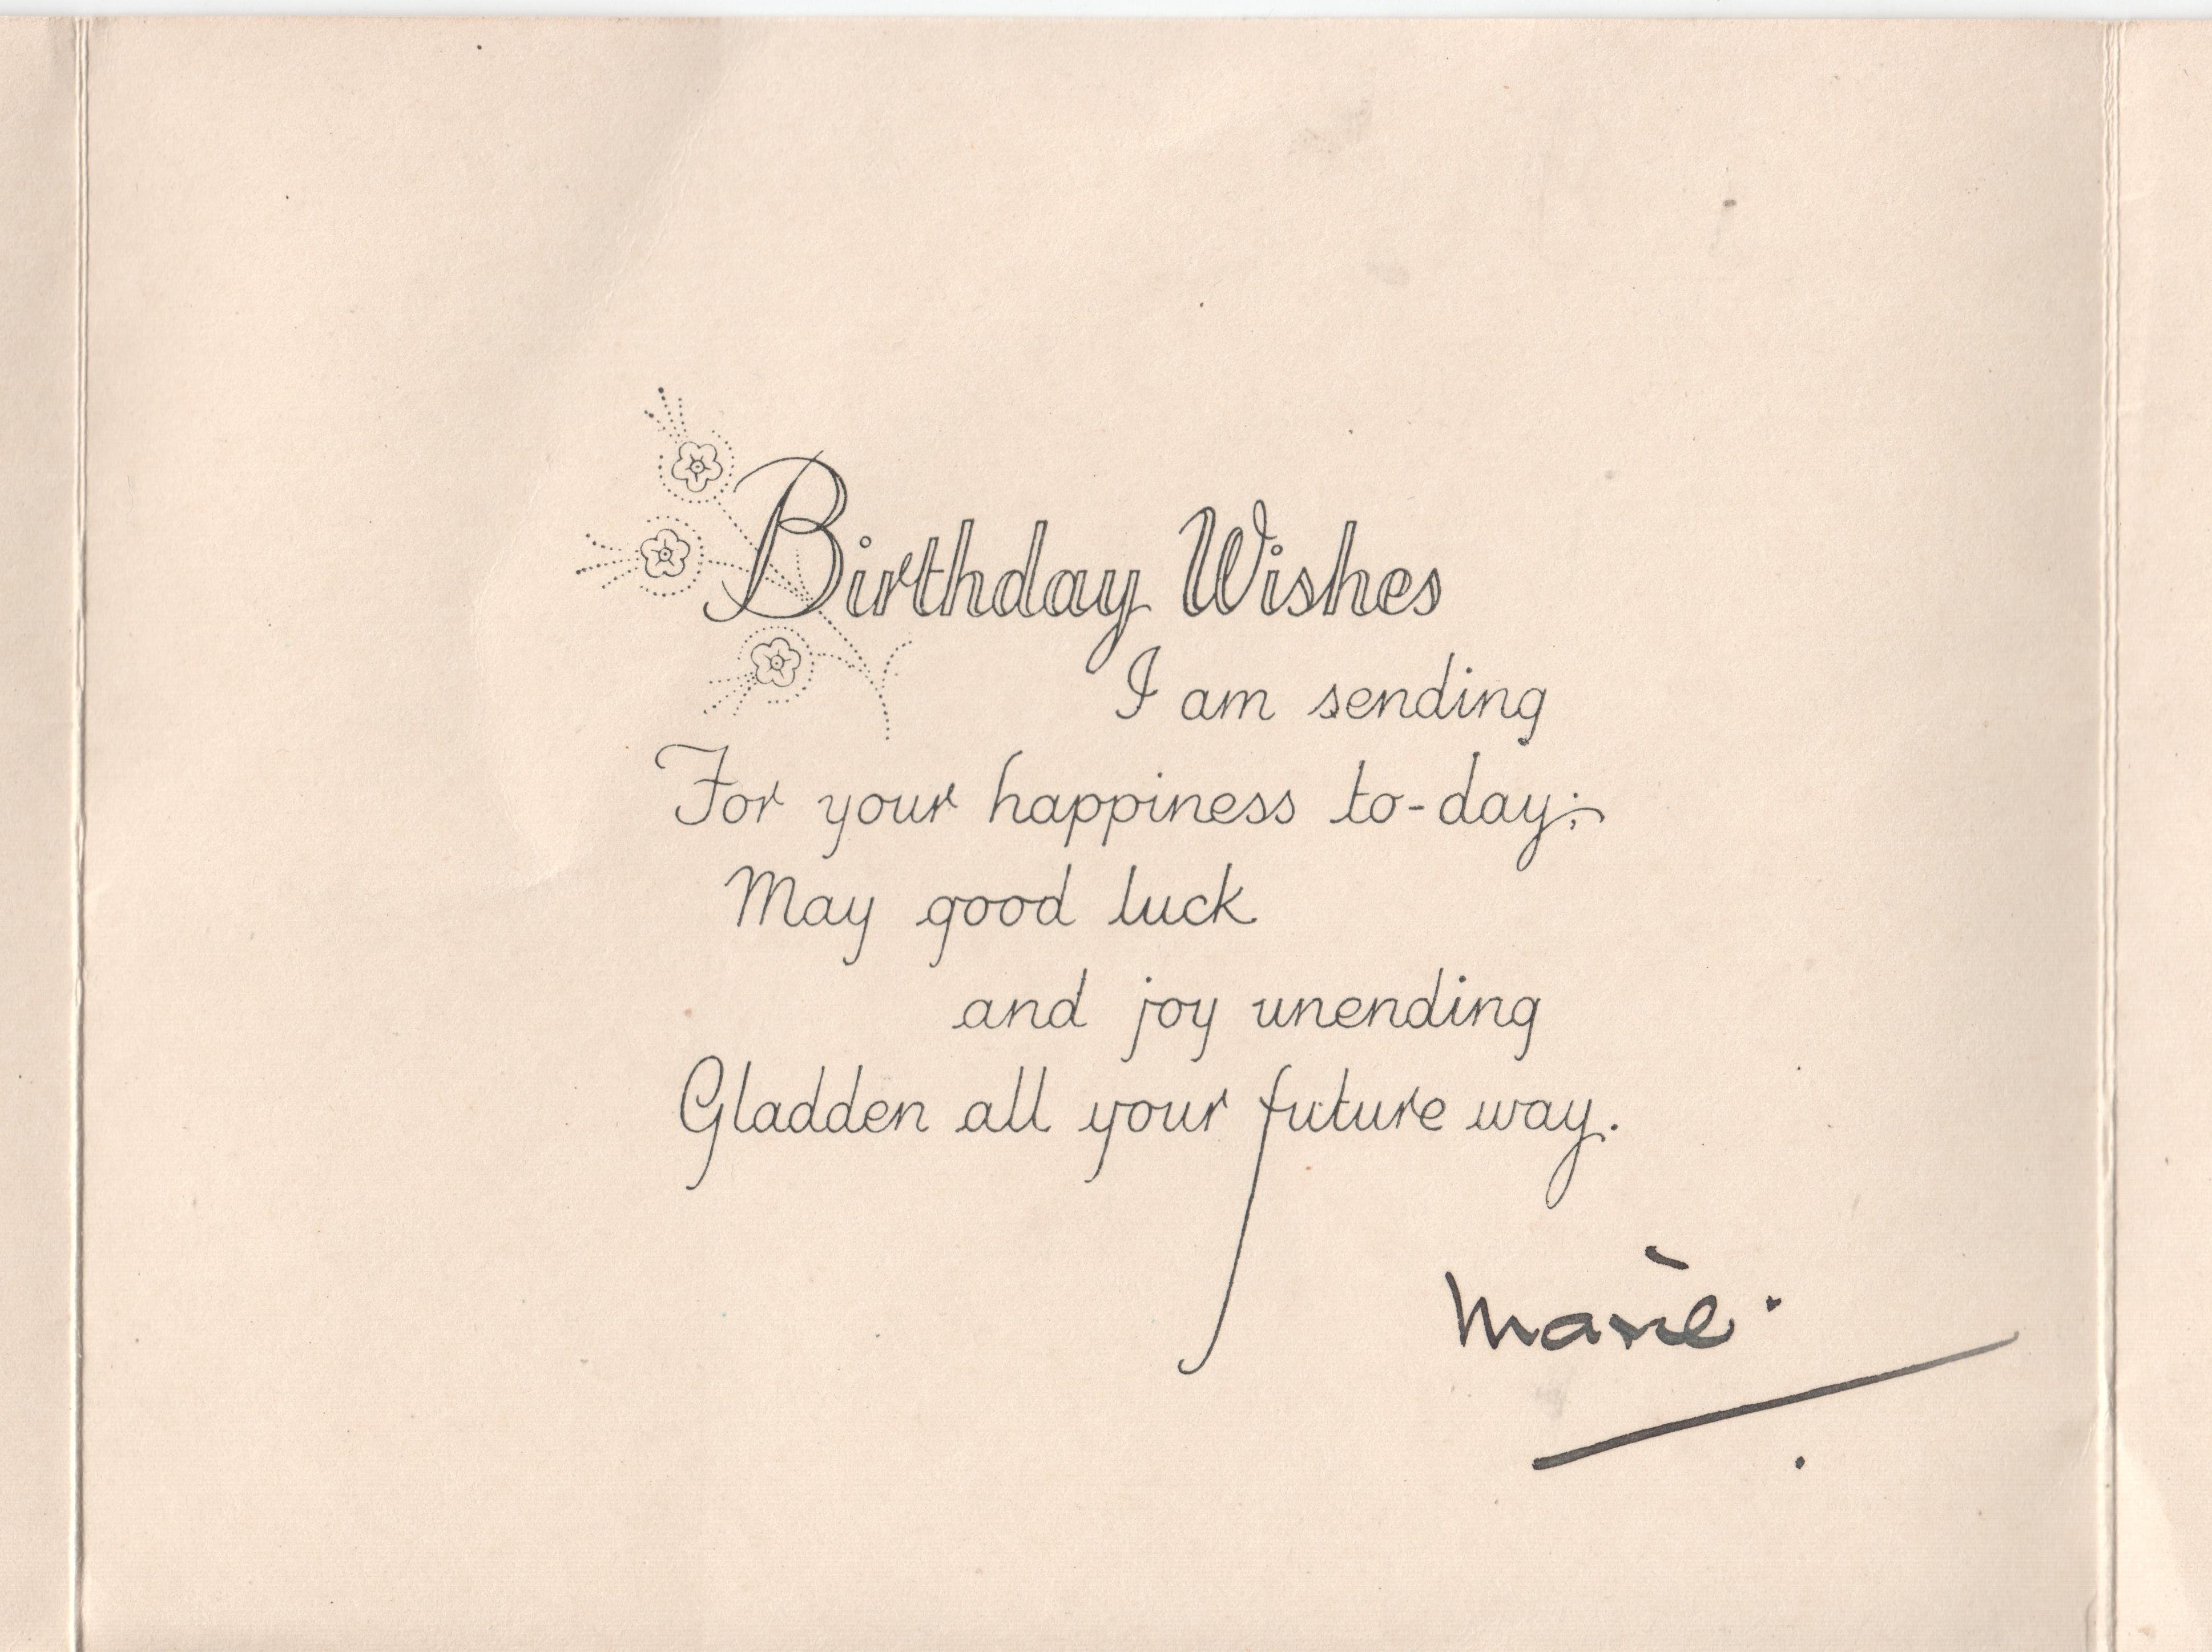 Birthday Wishes
I am sending
For your happiness to-day;
May good luck
and joy unending
Gladden all your future way.
Marie.